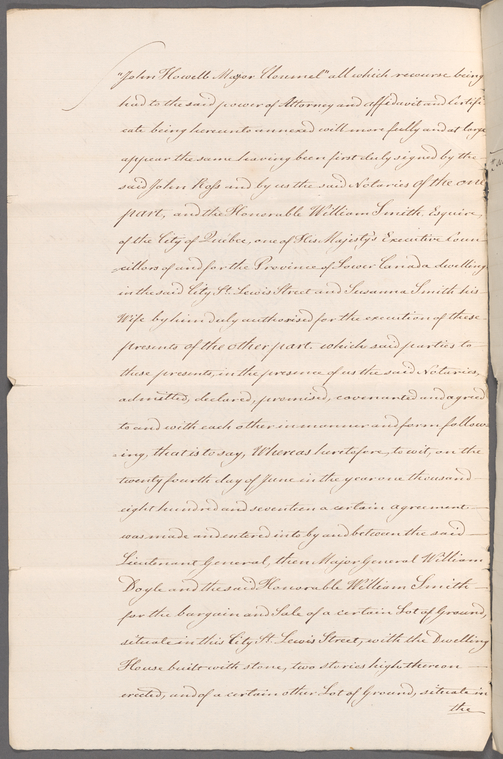 "John Howell Major Clonmel" all which recourse being
had to the said power of Attorney and affidavit and Certifi
cate being hereunto annexed will more fully and at large
appear the same having been first duly signed by the
said John Ross and by us the said Notaries of the one
part, and the Honorable William Smith, Esquire,
of the City of Quebec, one of His Majesty's Executive Coun-
cillors of and for the Province of Lower Canada dwelling
in the said City St. Lewis Street and Susanna Smith his
Wife by him duly authorised for the execution of these
presents of the other part. which said parties to
these presents, in the presence of us the said Notaries,
admitted, declared, promised, covenanted and agreed
to and with each other in manner and form follow-
ing, that is to say, Whereas heretofore, to wit, on the
twenty fourth day of June in the year one thousand
eight hundred and seventeen a certain agreement
was made and entered into by and between the said
Lieutenant General, then Major General William
Doyle and the said Honorable William Smith
for the bargain and Sale of a certain Lot of Ground,
situate in this City St. Lewis Street, with the Dwelling
House built with stone, two stories high thereon
erected, and of a certain other Lot of Ground, situate in
the